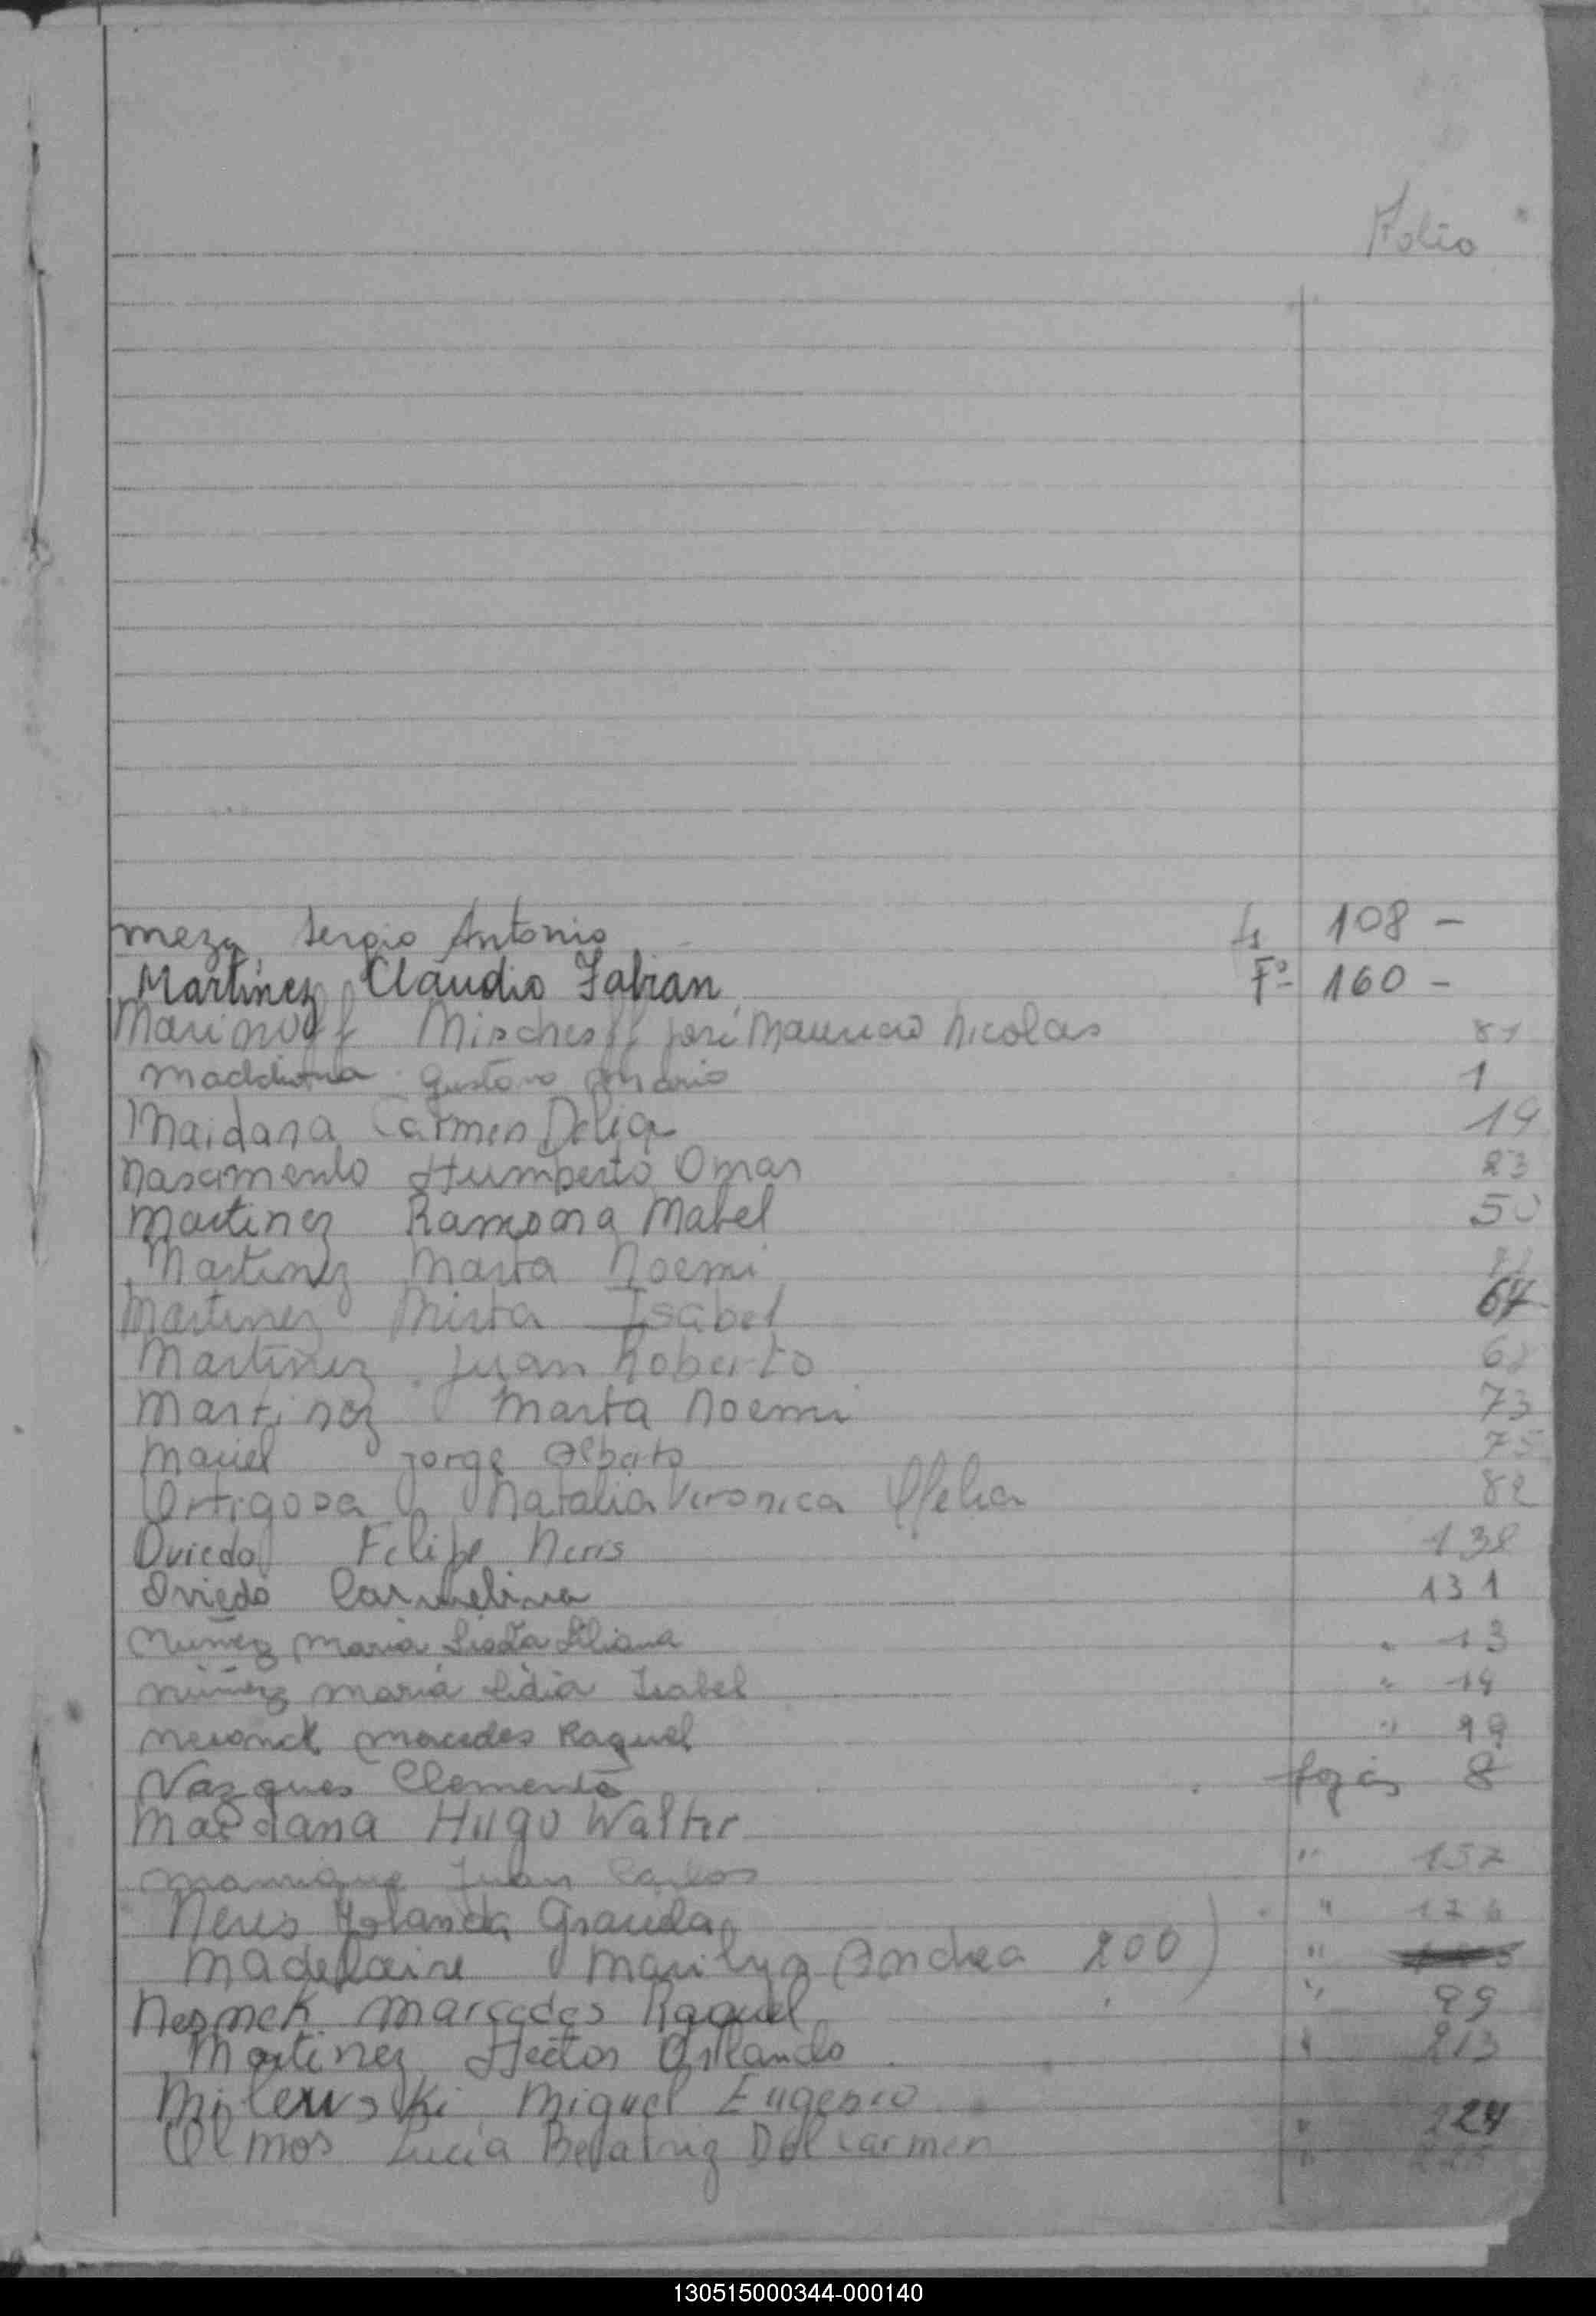 Folio
Meza, Sergio Antonio 108 -
Martinez, Claudio Fabian Fº 160 -
Marinoff Mischeff José Mauricio Nicolas 81
Gustavo 1
Maidana Carmen Delia 19
Nascimento Humberto Omar 23
Martinez Ramona Mabel 50
Martinez Marta Noemi
Martinez Mirta Isabel 67
Martinez Juan Roberto
Martinez Marta Noemi 73
Maciel Jorge Alberto 75
Ortigosa Natalia Veronica Ofelia 82
Oviedo Felipe Neris 138
Oviedo Carmelina 131
Nuñez Maria Liliana " 13
Nuñez Maria Lidia Isabel " 14
Mercedes Raquel " 99
Vazques Clemente fojas 8
Maidana Hugo Walter
Manrique Juan Carlos " 157
Neris Yolanda Graciela "
Madelaire Marilyn Andrea 200) "
Marcedes Raquel " 99
Martinez Hector Orlando " 213
Milewski Miguel Eugenio
Olmos Lucia Beatriz Del Carmen " 224